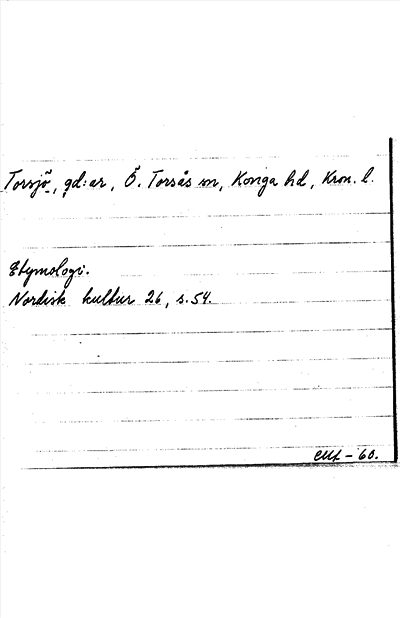 Torsjö, gd:ar, Ö. Torsås sn, Konga hd, Kron. l.
Etymologi.
Nordisk kultur 26, s. 54.
-60.